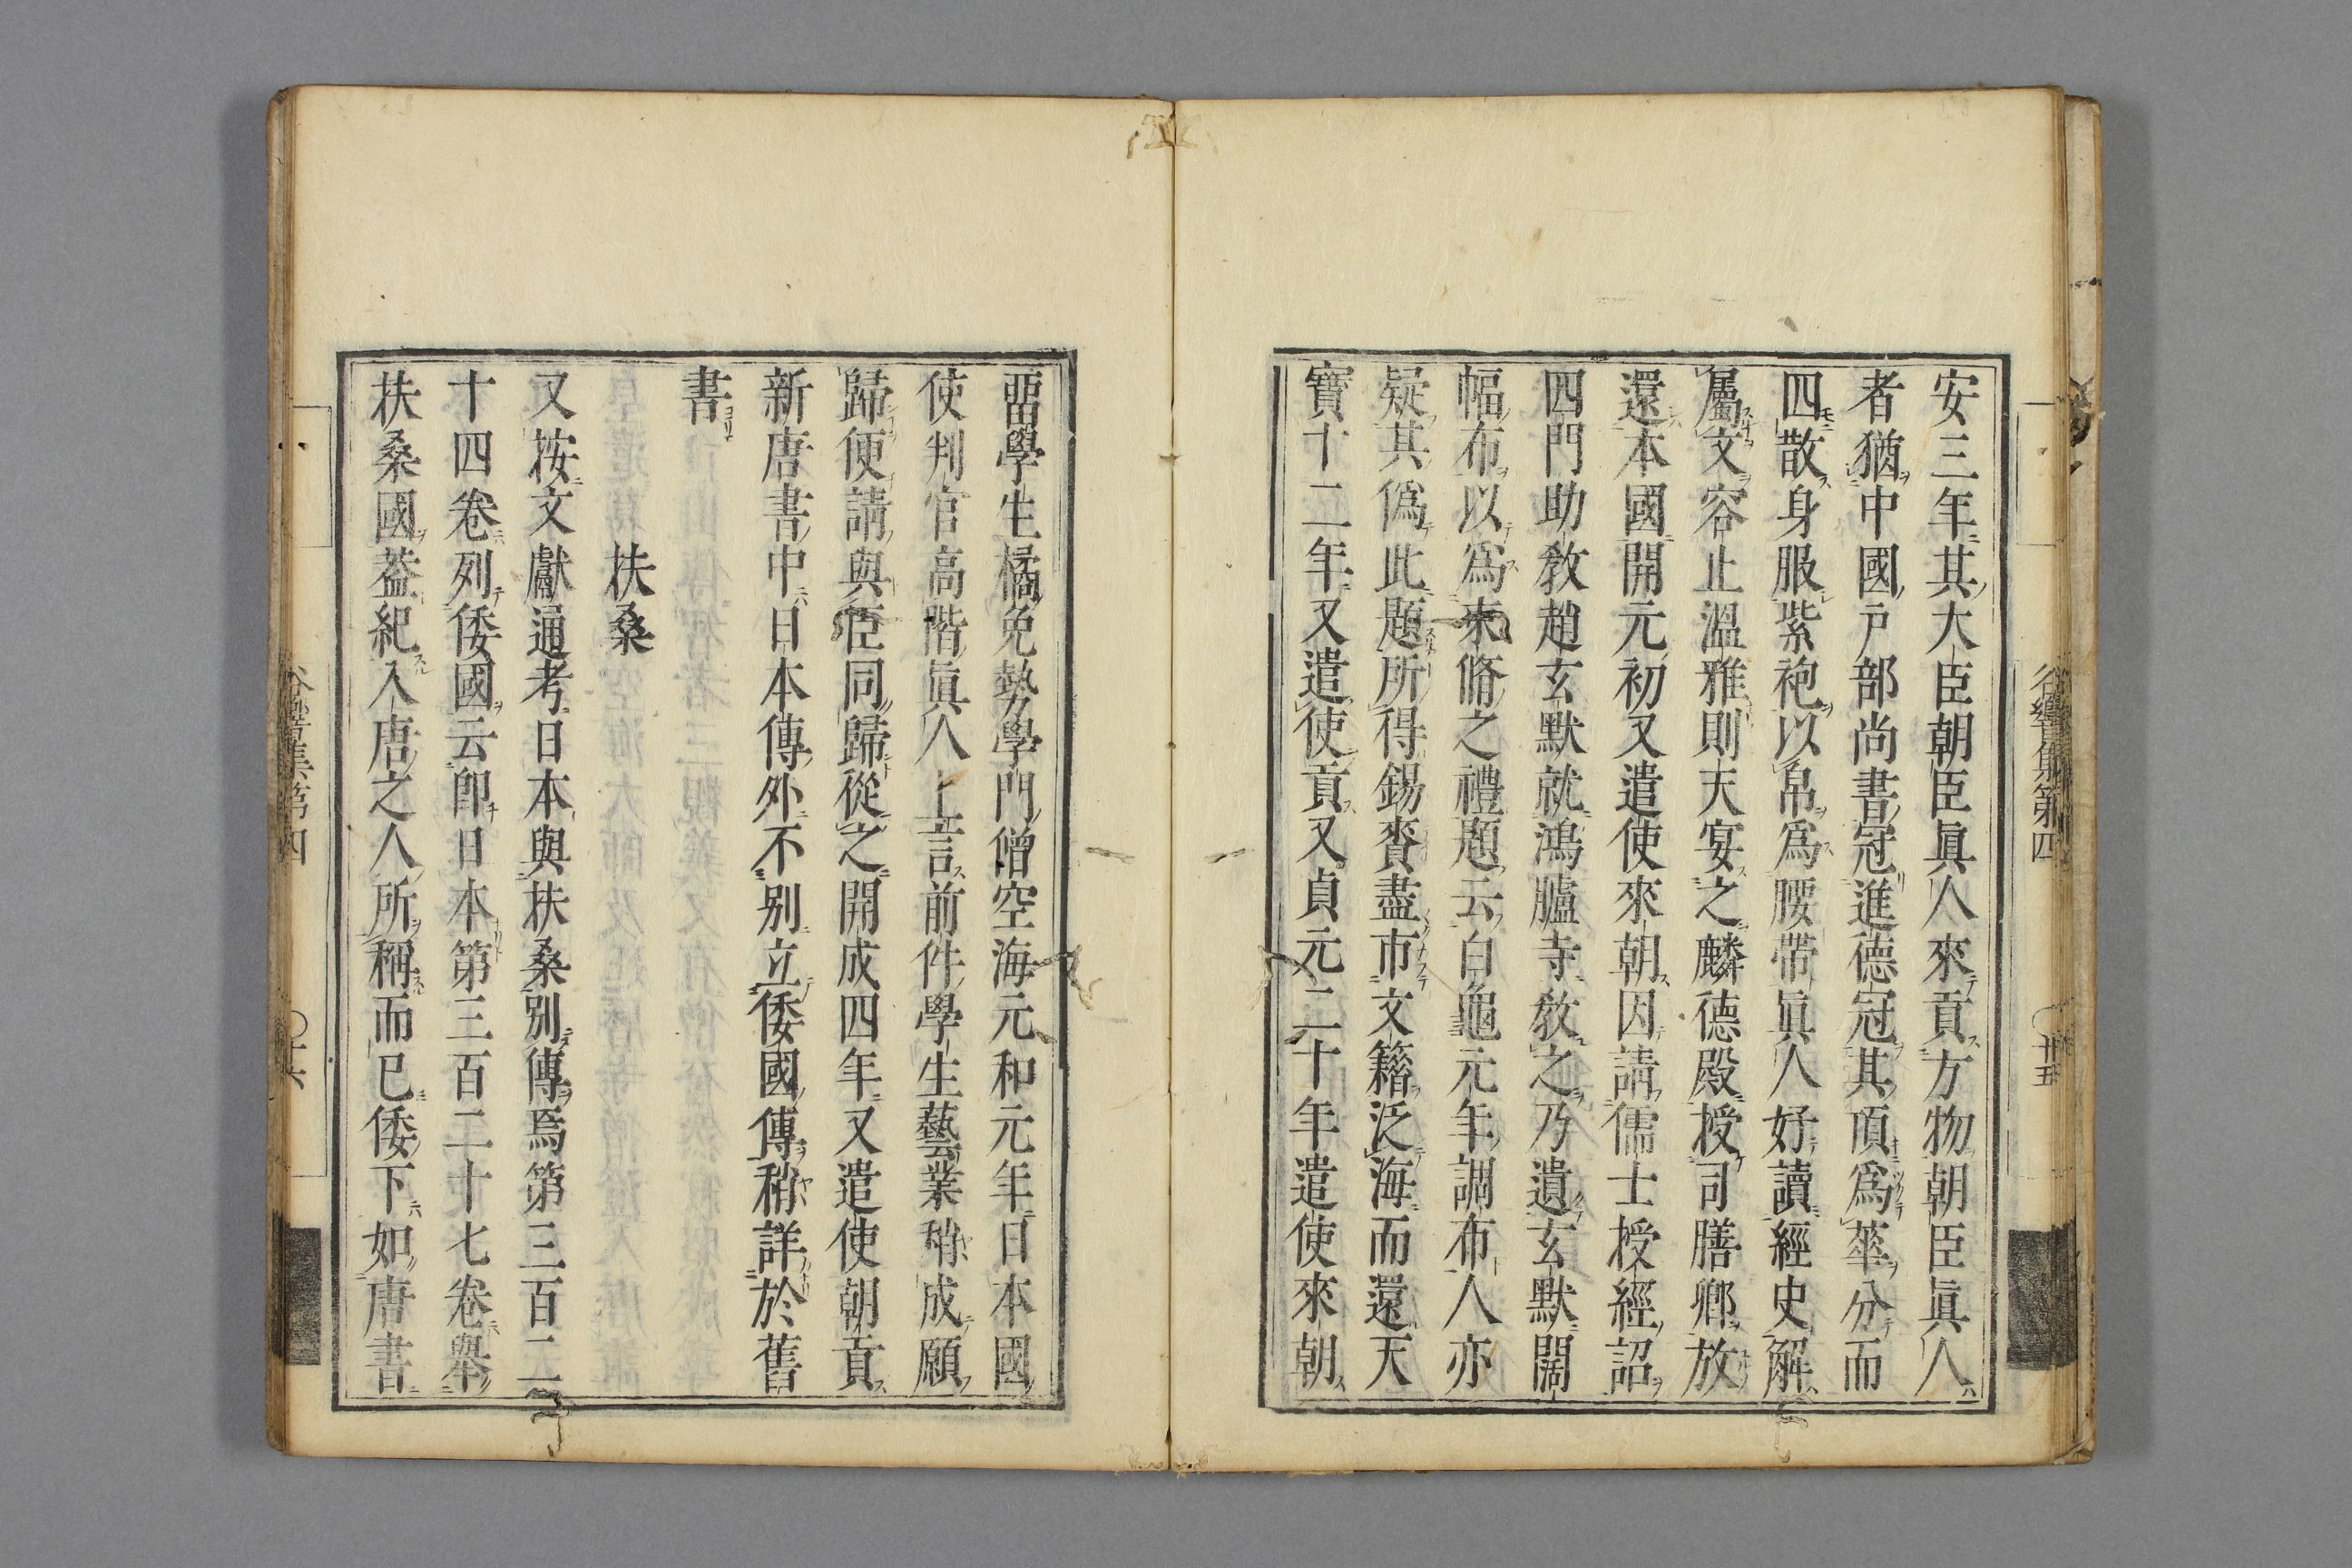 安三年其大臣朝臣眞人來貢方物朝臣眞人
者猶中國戸部尚書冠進德冠其頂爲蕐分而
四散身服紫袍以帛爲腰帶眞人好讀經史解
屬文容止溫雅則天宴之麟德殿授司膳卿放
還本國開元初又遣使來朝因請儒士授經詔
四門助敎趙玄默就鴻臚寺敎之乃遺玄默闊
幅布以爲束脩之禮題云白龜元年調布人亦
疑其僞此題所得錫賚盡市文籍泛海而還天
寶十二年又遣使貢又貞元二十年遣使來朝
谷響集第四
〇廿五
畱學生橘免勢學門僧空海元和元年日本國
使判官高階眞人上言前件學生藝業稍成願
歸便請與臣同歸從之開成四年又遣使朝貢
新唐書中日本傳外不別立倭國傳稍詳於舊
書
扶桑
又按文獻通考日本與扶桑別傳焉第三百二
十四卷列倭國云卽日本第三百二十七卷舉
扶桑國葢紀入唐之人所稱而已倭下如唐書
谷響集第四